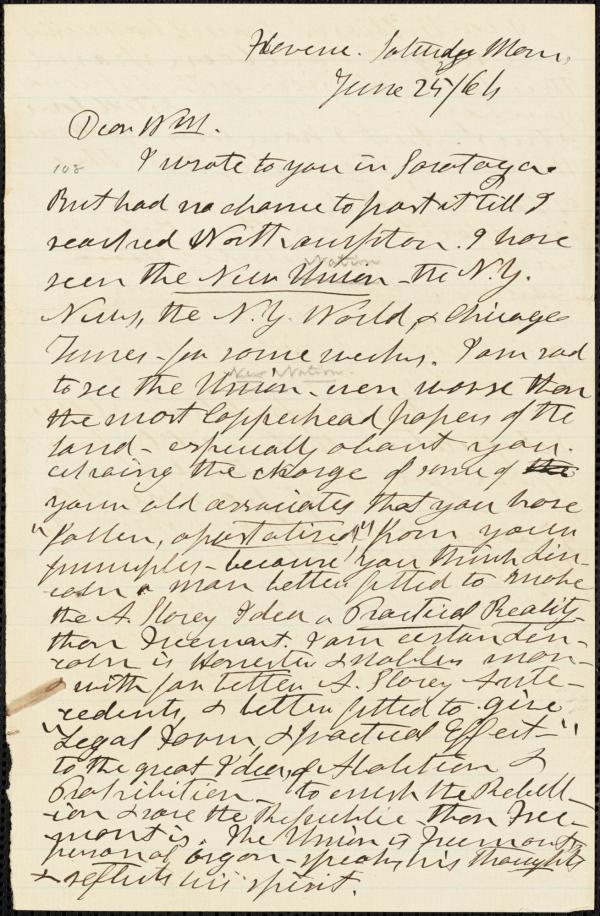 Florence. Saturday Morn,
June 25/64
Dear Wm.
108
I wrote to you in Saratoga.
But had no chance to post it till I
reached Northampton. I have
Nation
seen the New Union - the N.Y.
News, the N.Y. World, & Chicago
Times - for some weeks. I am sad
New Nation.
to see the Union - even worse than
the most Copperhead papers of the
land - especially about you.
echoing the charge of some of the
your old associates that you have
"fallen, apostatised" from your
principles - because you think Lin-
coln a man better fitted to make
the A. Slavey Idea a Practical Reality
than Freemont. I am certain Lin-
coln is Honester & nobler man -
& with far better A. Slavey Ante-
cedents, & better fitted to give
"Legal Form, & practical Effect -"
to the great Idea, of Abolition &
Prohibition - to crush the Rebell-
ion & save the Republic - than Free-
mont is. The Union is Freemonts
personal organ - speaks his thoughts
& reflects his spirit.